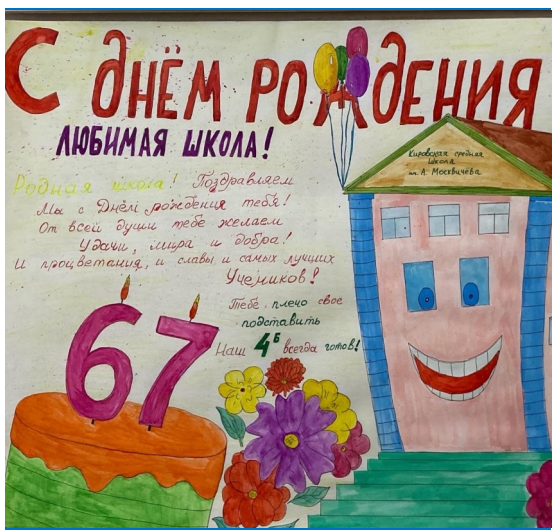 С ДНЁМ РОЖДЕНИЯ
ЛЮБИМАЯ ШКОЛА!
Кировская средняя
Школа
им. А. Москвичёва
Родная школа! Поздравляем
Мы с Днём рождения тебя!
От всей души тебе желаем
Удачи, мира и добра!
И процветания, и славы и самых лучших
Учеников!
Тебе плечо свое
подставить
Наш 4Б всегда готов!
67